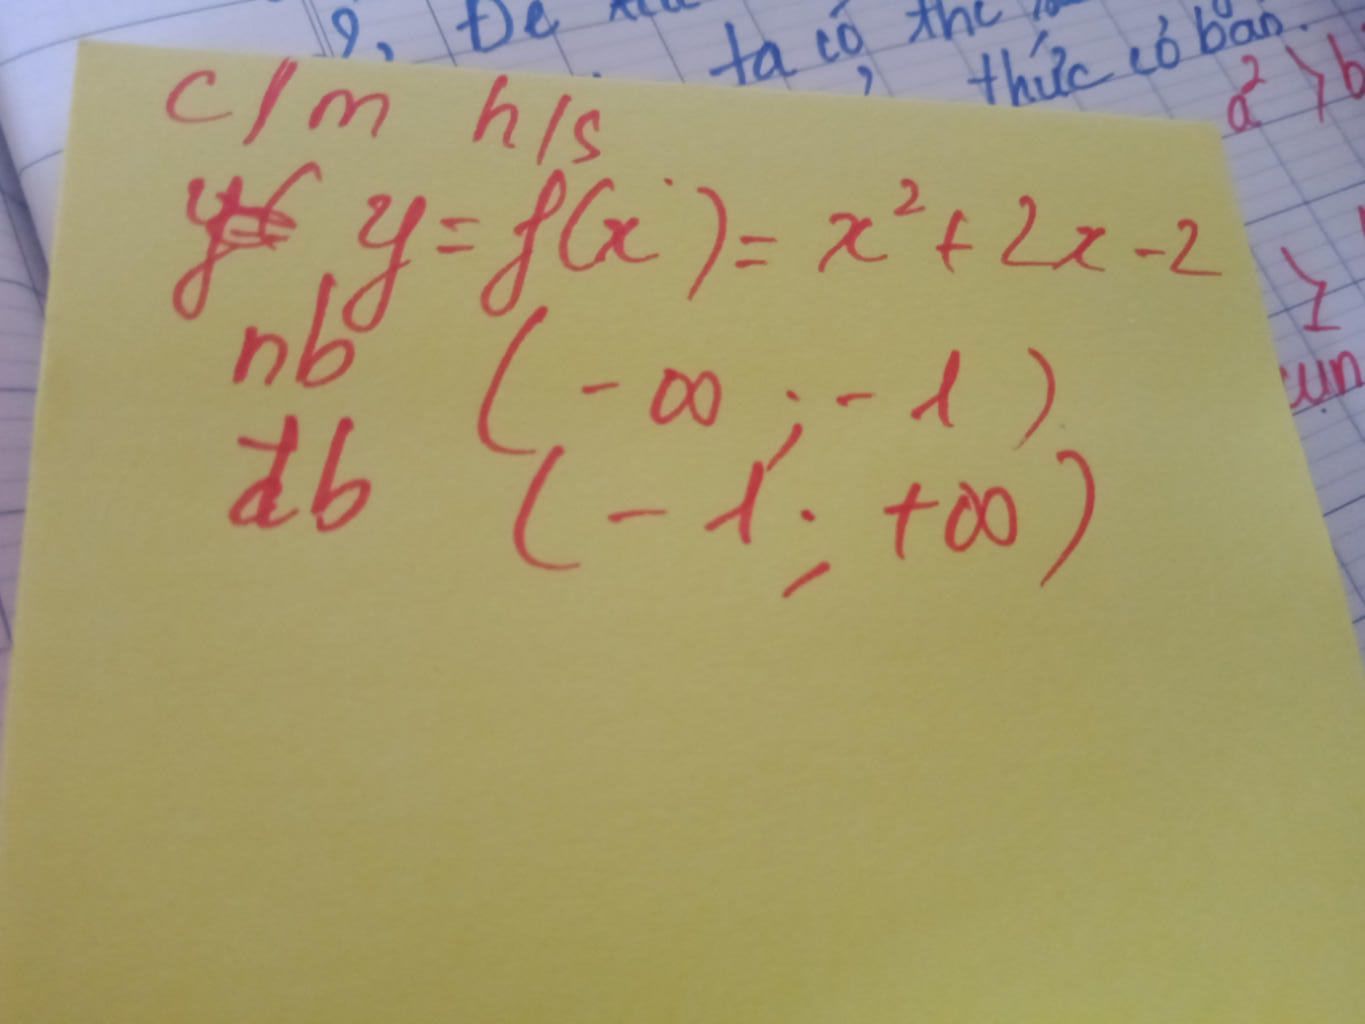 9, Để
ta có thể
thức có bản.
a² > b
c/m h/s
y = f(x) = x² + 2x - 2
nb (-∞ ; -1)
đb (-1 ; +∞)